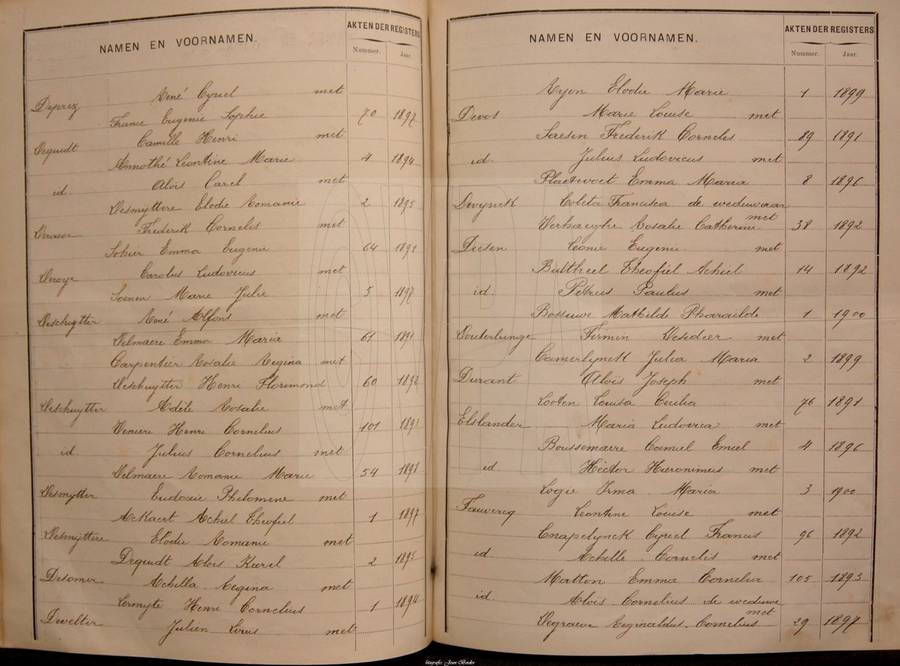 NAMEN EN VOORNAMEN.
AKTEN DER REGISTERS
Nummer. Jaar.
Deprez René Cyriel met
France Eugenie Sophie 70 1897
Dequidt Camille Henri met
Annothé Leontine Marie 4 1894
id. Aloïs Carel met
Desmyttere Elodie Romanie 2 1895
Frederik Cornelis met
Sohier Emma Eugenie 64 1891
Carolus Ludovicus met
Soenen Marie Julie 5 1897
Deschuytter René Alfons met
Delmaere Emma Maria 61 1891
Carpentier Rosalie Regina met
Deschuytter Henri Florimond 60 1892
Deschuytter Adèle Rosalie met
Henri Cornelius 101 1891
id Julius Cornelius met
Delmaere Romanie Marie 54 1893
Desmytter Eudoxie Philomene met
Ackaert Achiel Theofiel 1 1897
Desmyttere Elodie Romanie met
Dequidt Alois Karel 2 1895
Desomer Achilla Regina met
Henri Cornelius 1 1894
Dewelter Julien met
NAMEN EN VOORNAMEN.
AKTEN DER REGISTERS
Nummer. Jaar.
Ryon Elodie Marie 1 1899
Devos Marie Louise met
Saesen Frederik Cornelis 89 1891
id. Julius Ludovicus met
Plaetevoet Emma Maria 8 1896
Dwynck Coleta Francisca de weduwaar
met
Verhaeghe Rosalie Catherine 38 1892
Diesen Leonie Eugenie met
Bultheel Theofiel Achiel 14 1892
id. Petrus Paulus met
Bossuwe Mathilde Pharaïlde 1 1900
Firmin Desideer met
Camerlynck Julia Maria 2 1899
Durant Aloïs Joseph met
Looten Louisa Cecilia 76 1891
Elslander Maria Ludovica met
Boussemaere Camiel Emiel 4 1896
id Hector Hieronimus met
Logie Irma Maria 3 1900
Fauvercq Leontine Louise met
Cnapelynck Cyriel Francis 96 1892
id Achille Cornelis met
Matton Emma Cornelia 105 1893
id. Alois Cornelius de weduwe
met
Degraeve Reginaldus Cornelius 29 1897